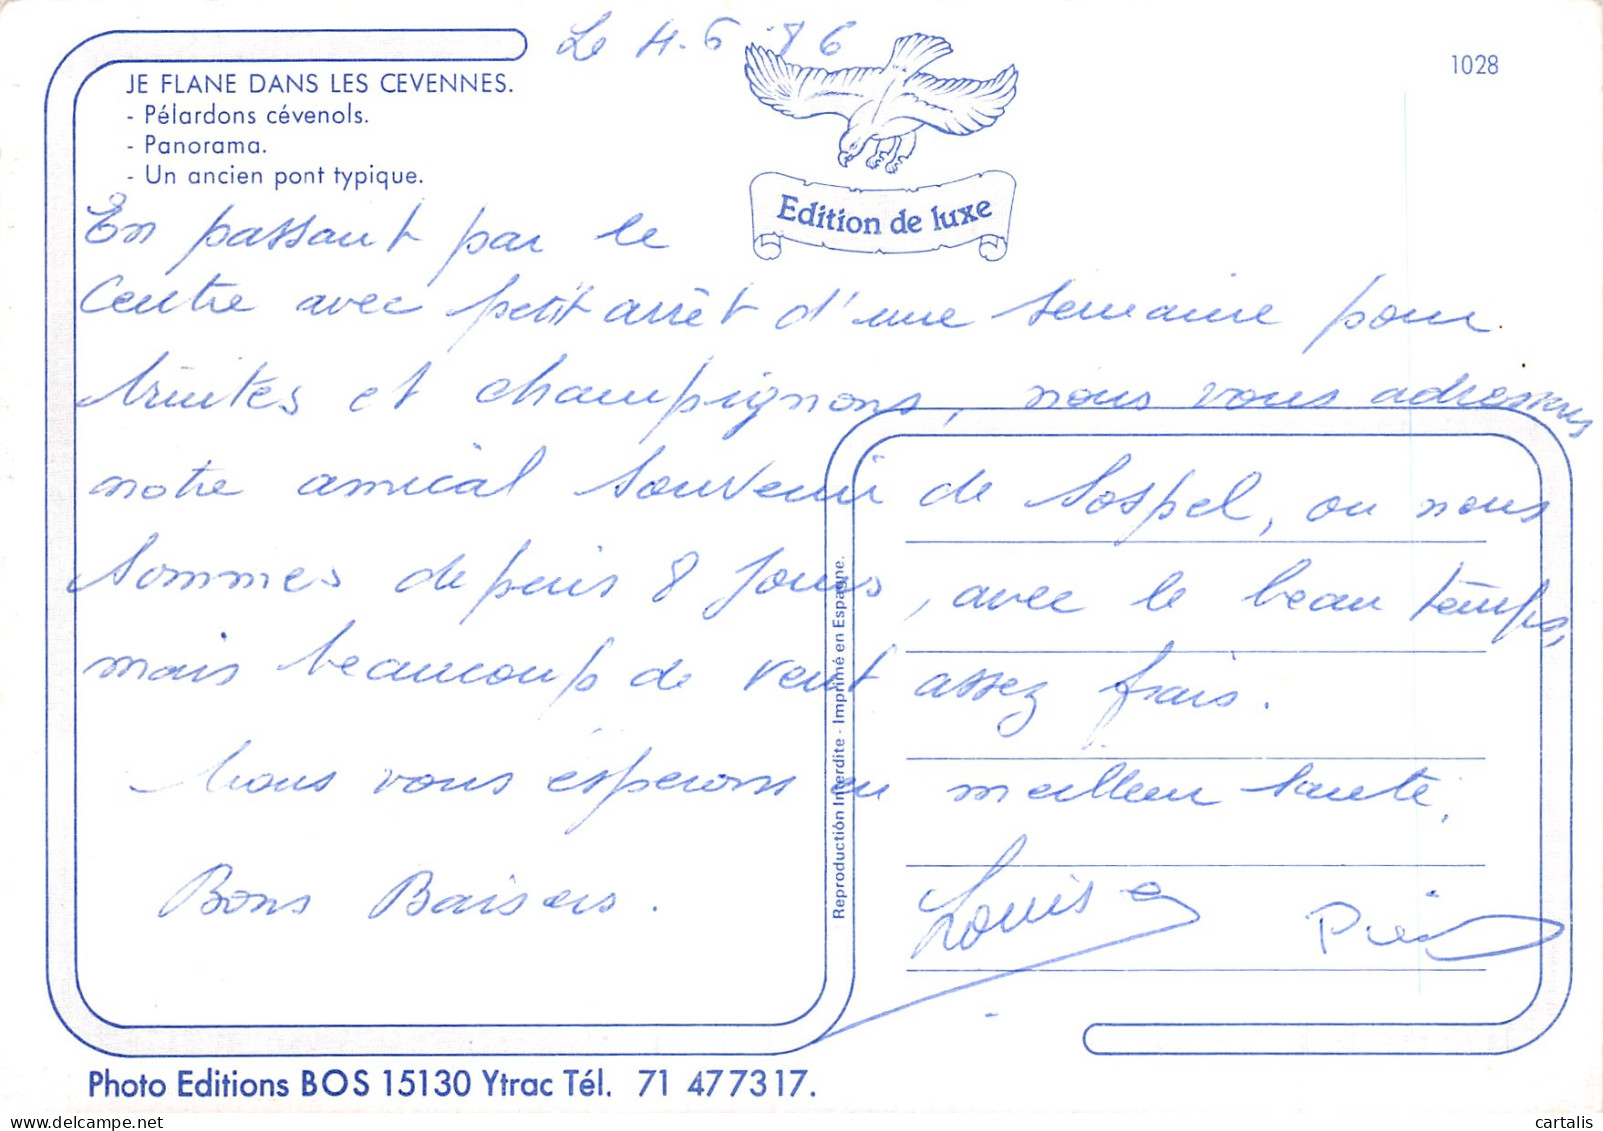 Le 4.6.86
1028
JE FLANE DANS LES CEVENNES.
- Pélardons cévenols.
- Panorama.
- Un ancien pont typique.
Edition de luxe
En passant par le
Centre avec petit arrêt d'une semaine pour
truites et champignons, nous vous adressons
notre amical souvenir de Sospel, ou nous
sommes depuis 8 jours, avec le beau temps,
mais beaucoup de vent assez frais.
Nous vous espérons en meilleure santé.
Bons Baisers.
Louise
Reproduction Interdite - Imprimé en Espagne.
Photo Editions BOS 15130 Ytrac Tél. 71 477317.
cartalis